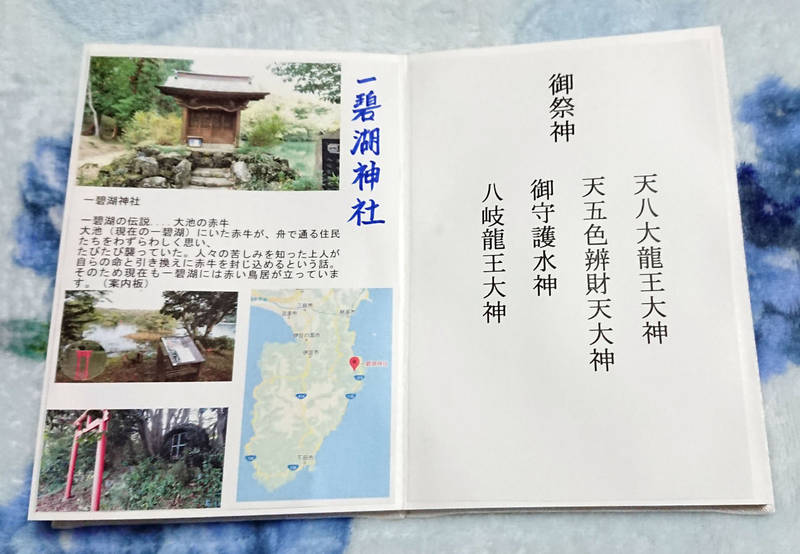 一碧湖神社
一碧湖神社
一碧湖の伝説....大池の赤牛
大池（現在の一碧湖）にいた赤牛が、舟で通る住民
たちをわずらわしく思い、
たびたび襲っていた。人々の苦しみを知った上人が
自らの命と引き換えに赤牛を封じ込めるという話。
そのため現在も一碧湖には赤い鳥居が立っていま
す。（案内板）
三島市
熱海市
伊豆の国市
伊豆市
一碧湖神社
下田市
御祭神
天八大龍王大神
天五色辨財天大神
御守護水神
八岐龍王大神